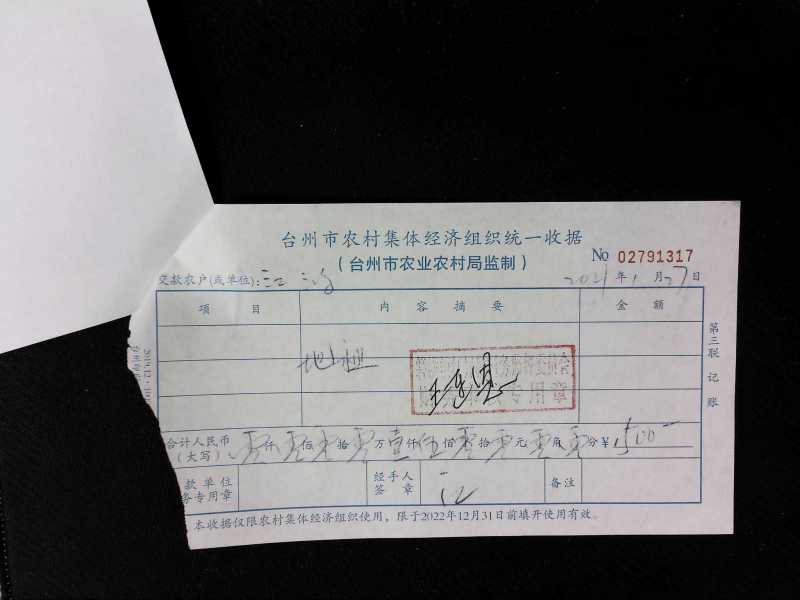 台州市农村集体经济组织统一收据
(台州市农业农村局监制)
No 02791317
交款农户(或单位): 江
2021年1月27日
项 目 内 容 摘 要 金 额
地租
专用章
合计人民币
(大写) 零仟零佰零拾零万壹仟伍佰零拾零元零角零分 ¥1500一
款单位
务专用章
经手人
签 章
江
备注
本收据仅限农村集体经济组织使用,限于2022年12月31日前填开使用有效。
第三联 记账